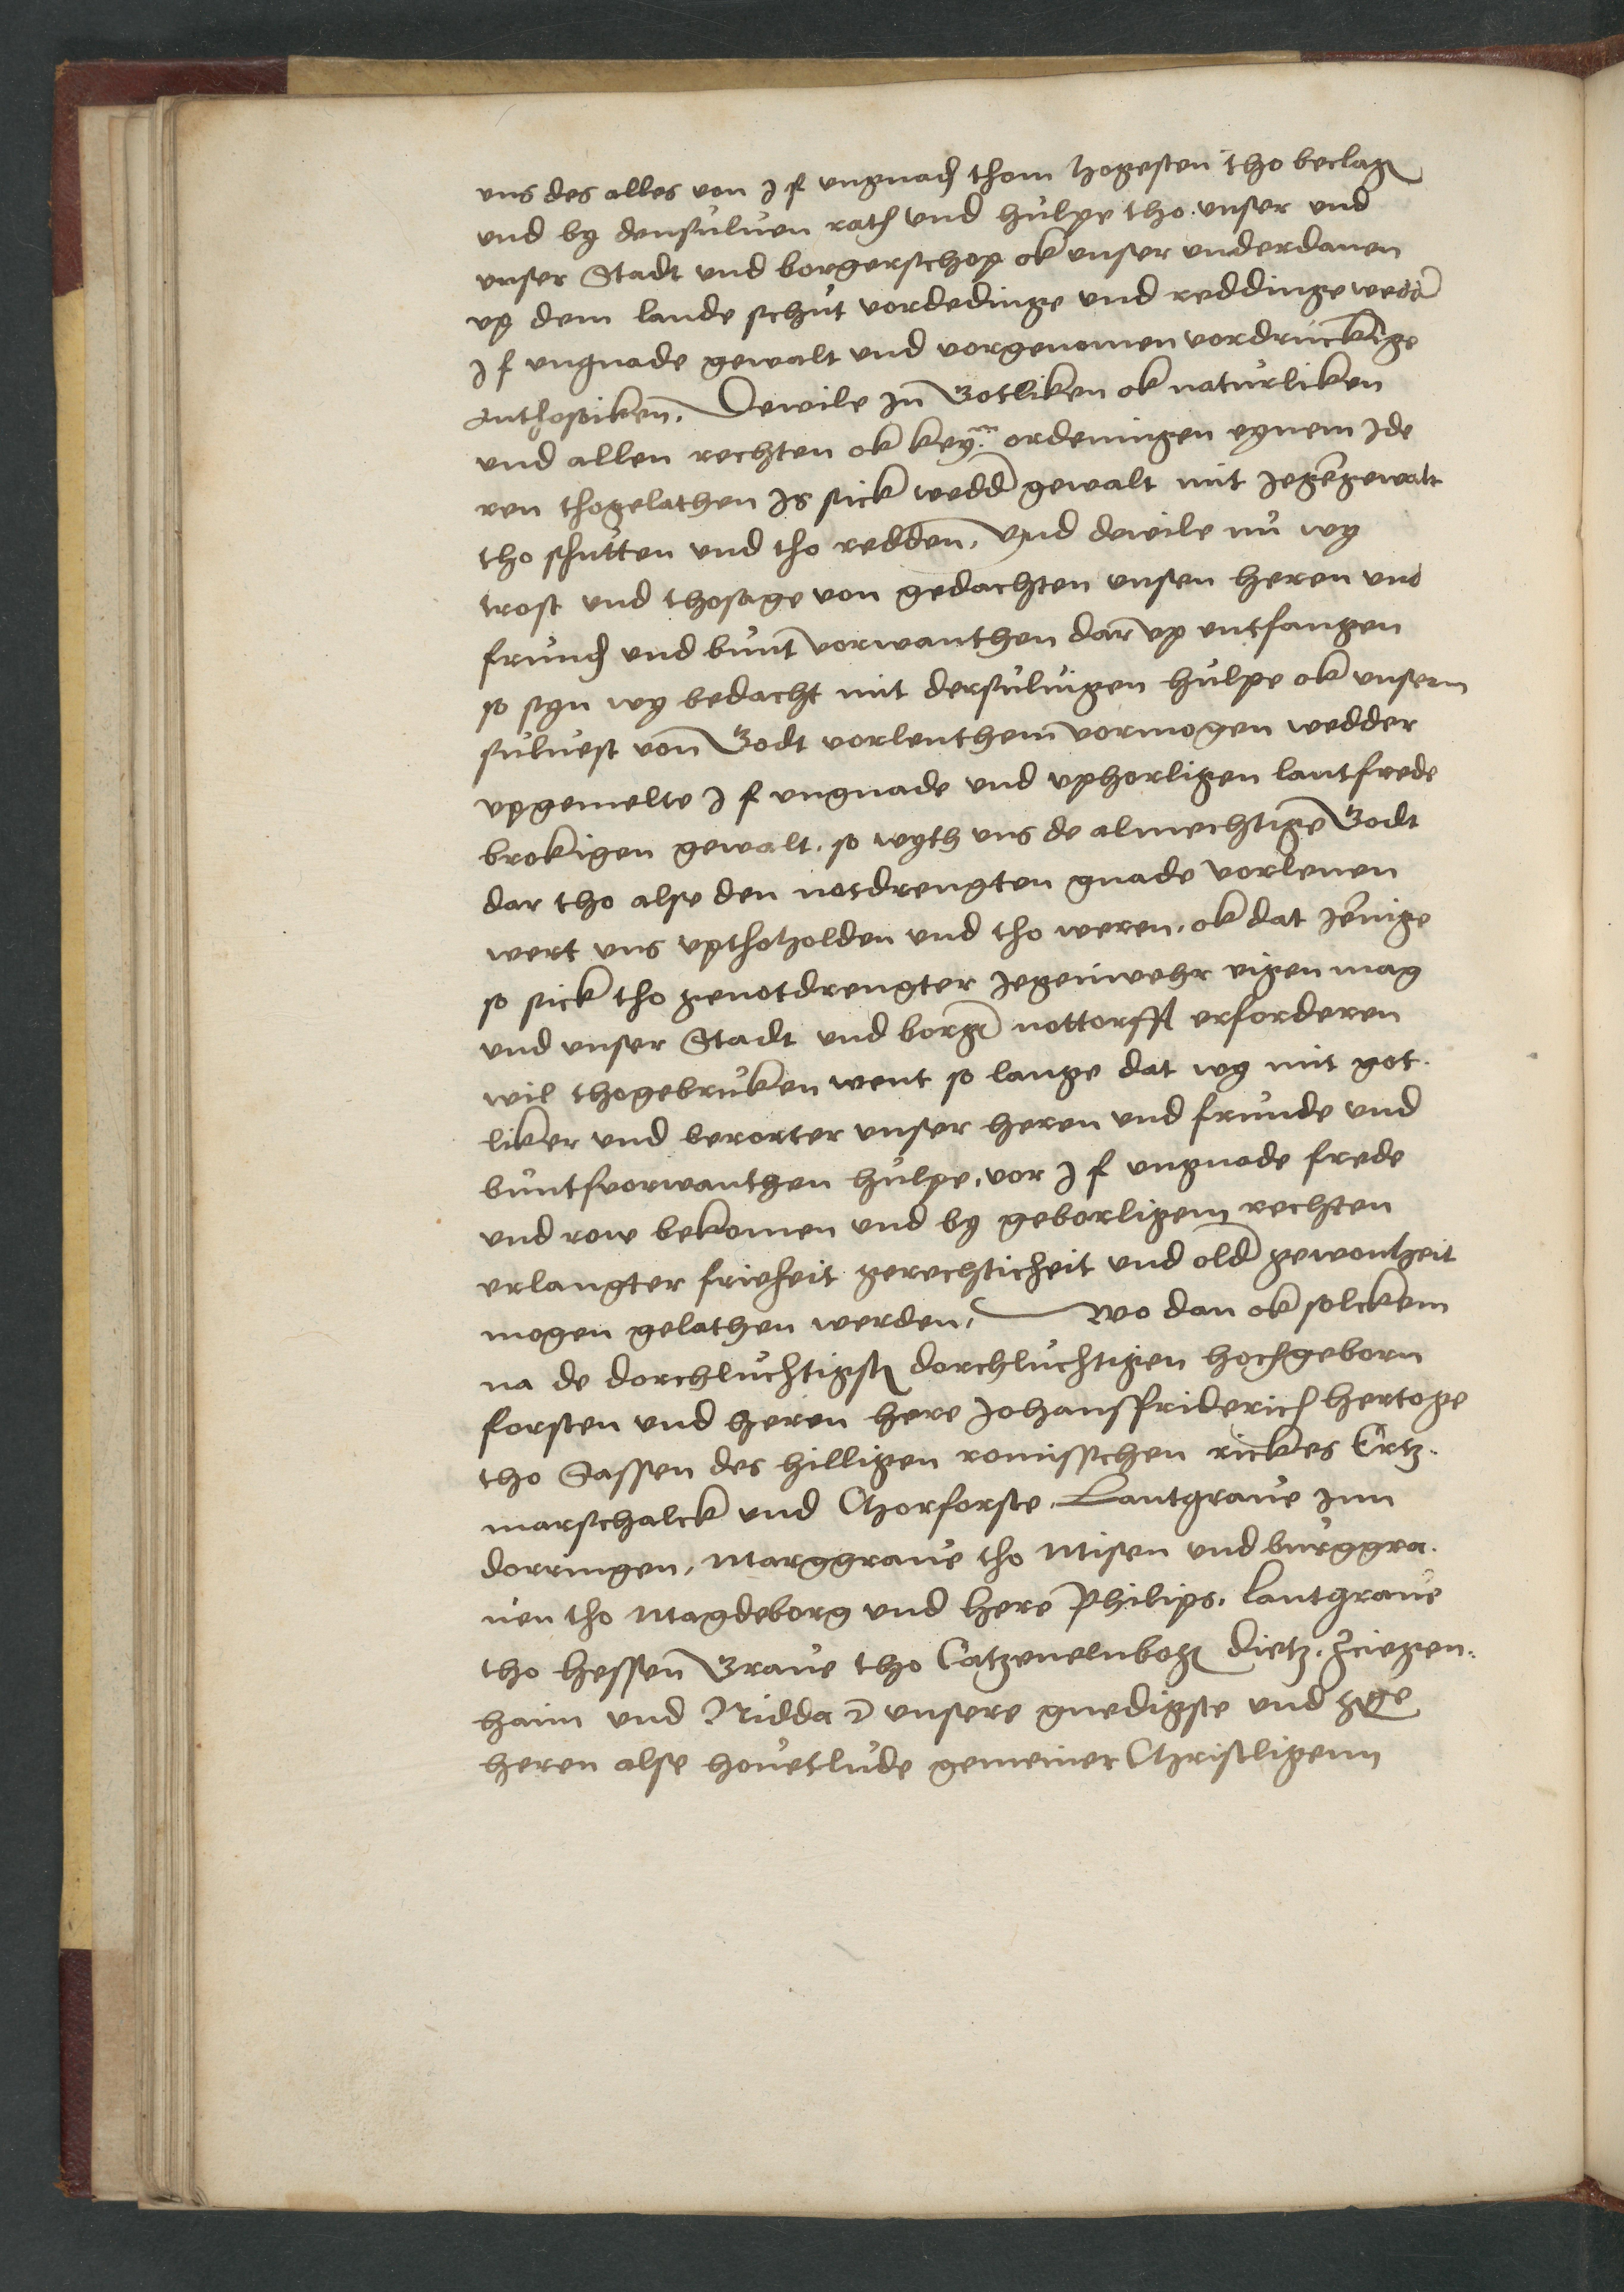 vns des alles von J f vngnad thom hogesten tho beclag
vnd by densuluen rath vnd hulpe tho vnser vnd
vnser Stadt vnd borgerschop ok vnser vnderdanen
vp dem lande schut vordedinge vnd reddinge wedd
J f vngnade gewalt vnd vorgenomen vordruckige
anthosoiken. Dewile Jn Gotliken ok naturliken
vnd allen rechten ok key. ordeningen eynem Jde
ren thogelathen Js sick wedd gewalt mit Jegegewalt
tho schutten vnd tho redden, Vnd dewile nu wy
trost vnd thosage von gedachten vnsen heren vnd
frund vnd bunt vorwanthen dar vp entfangen
so syn wy bedacht mit dersuluigen hulpe ok vnsem
suluest von Godt vorlenthem vormogen wedder
vpgemelte J f vngnade vnd vphorligen lantfrede
brokigen gewalt. so wyth vns de almechtige Godt
dar tho alse den notdrengten gnade vorlenen
wert vns vptholden vnd tho weren. ok dat Jenige
so sick tho genotdrengter Jegenwehr eigen mag
vnd vnser Stadt vnd borge nottorfft erforderen
wil thogebruken went so lange dat wy mit got.
liker vnd berorter vnser heren vnd frunde vnd
buntsvorwanthen hulpe, vor J f vngnade frede
vnd row bekomen vnd by geborligem rechten
erlangter frieheit gerechticheit vnd old gewontheit
mogen gelathen werden, wo dan ok solckem
na de dorchluchtigst dorchluchtigen hochgeborn
forsten vnd heren here Johansfriderich hertoge
tho Sassen des hilligen romisschen rickes Ertz.
marschalck vnd Chorforste. Lantgraue Jnn
dorringen, Marggraue tho Misen vnd burggra.
uen tho Magdeborg vnd here Philips. lantgraue
tho hessen Graue tho Catzenelnbog Dietz. Zciegen.
haim vnd Nidda vnsere gnedigste vnd
heren alse houetlude gemeiner Christligenn